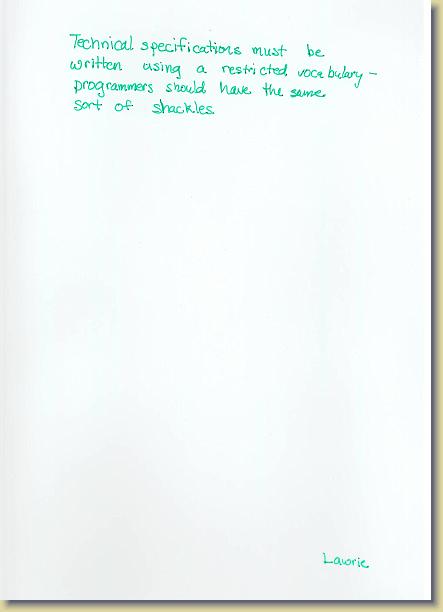 Technical specifications must be
written using a restricted vocabulary –
programmers should have the same
sort of shackles
Lawrie